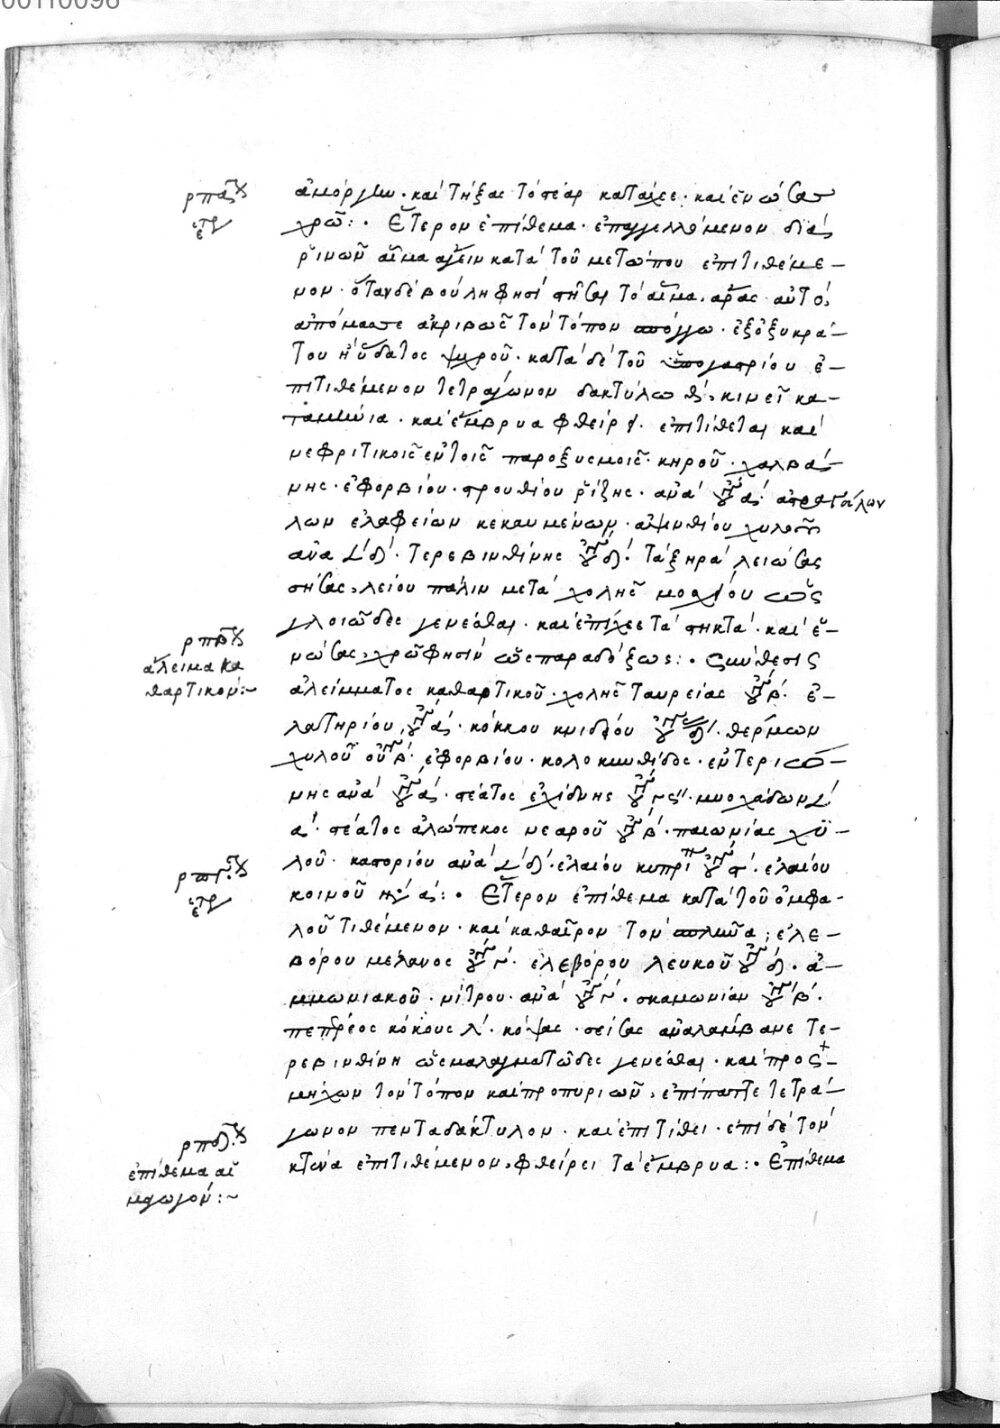 00110098
ρπα
ἀμόργην · καὶ τήξας τὸ στέαρ κατάχεε · καὶ ἑνώσας
χρῶ : · Ἕτερον ἐπίθεμα · ἐπαγγελλόμενον διὰ
ῥινῶν αἷμα ἄγειν κατὰ τοῦ μετώπου ἐπιτιθέμε-
νον · ὅταν δὲ βούλῃ φησὶ στῆσαι τὸ αἷμα, ἄρας αὐτὸ,
ἀπόμασσε ἀκριβῶς τὸν τόπον σπόγγω · ἐξ ὀξυκρά-
του ἢ ὕδατος ψυχροῦ · κατὰ δὲ τοῦ ὑπογαστρίου ἐ-
πιτιθέμενον τετράγωνον δακτύλω κινεῖ κα-
ταμήνια · καὶ ἔμβρυα φθείρει · ἐπιτίθεται καὶ
νεφριτικοῖς ἐν τοῖς παροξυσμοῖς · κηροῦ · χαλβά-
νης · εὐφορβίου · στρουθίου ῥίζης · ἀνὰ γο α · ἀστραγάλων
λων ἐλαφείων κεκαυμένων · ἀψινθίου χυλοῦ
ἀνὰ δ · τερεβινθίνης γο δ · τὰ ξηρὰ λειώσας
σήσας, λείου πάλιν μετὰ χολῆς μοσχίου ὡς
γλοιῶδες γενέσθαι · καὶ ἐπίχεε τὰ τηκτὰ · καὶ ἑ-
ρπβ
ἄλειμα κα
θαρτικόν : ~
νώσας, χρῶ φησὶν ὡς παραδόξως : · Σύνθεσις
ἀλείμματος καθαρτικοῦ · χολῆς ταυρείας γο β · ἐ-
λατηρίου, γο α · κόκκου κνιδίου γο · θέρμων
χυλοῦ γο β · εὐφορβίου · κολοκυνθίδος · ἐντεριώ-
νης ἀνὰ γο α · στέατος ἐχίδνης γο · μυοχάδων
α · στέατος ἀλώπεκος νεαροῦ γο β · παιωνίας χυ-
λοῦ · καστορίου ἀνὰ δ · ἐλαίου κυπρί γο · ἐλαίου
ρπγ
κοινοῦ α : · Ἕτερον ἐπίθεμα κατὰ τοῦ ὀμφα-
λοῦ τιθέμενον · καὶ καθαῖρον τὸν ; ἐλε-
βόρου μέλανος γο · ἐλεβόρου λευκοῦ γο δ · ἀ-
μμωνιακοῦ · νίτρου · ἀνὰ γο · σκαμωνίαν γο β ·
πεπέρεος κόκους λ · κόψας · σείσας ἀναλάμβανε τε-
ρεβινθίνη ὡς μαλαγματῶδες γενέσθαι · καὶ προς
μήχων τὸν τόπον καὶ προπυριῶν, ἐπίπαττε τετρά-
ρπδ
ἐπίθεμα αἱ
μαγωγόν : ~
γωνον πενταδάκτυλον · καὶ ἐπιτίθει · ἐπὶ δὲ τὸν
κτένα ἐπιτιθέμενον, φθείρει τὰ ἔμβρυα : · Ἐπίθεμα